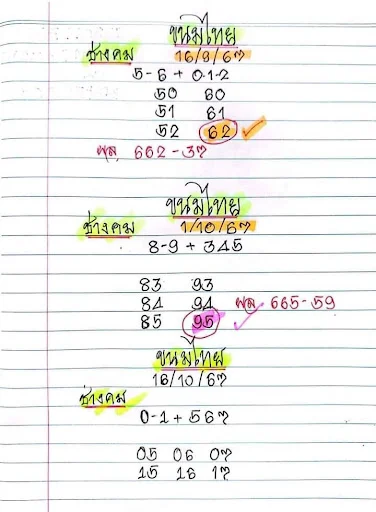 ขนมไทย
ช่างคม 16/9/67
5-6 + 0-1-2
50 60
51 61
52 62
ผล 662-37
ขนมไทย
ช่างคม 1/10/67
8-9 + 345
83 93
84 94 ผล 665-59
85 95
ขนมไทย
16/10/67
ช่างคม
0-1 + 567
05 06 07
15 16 17